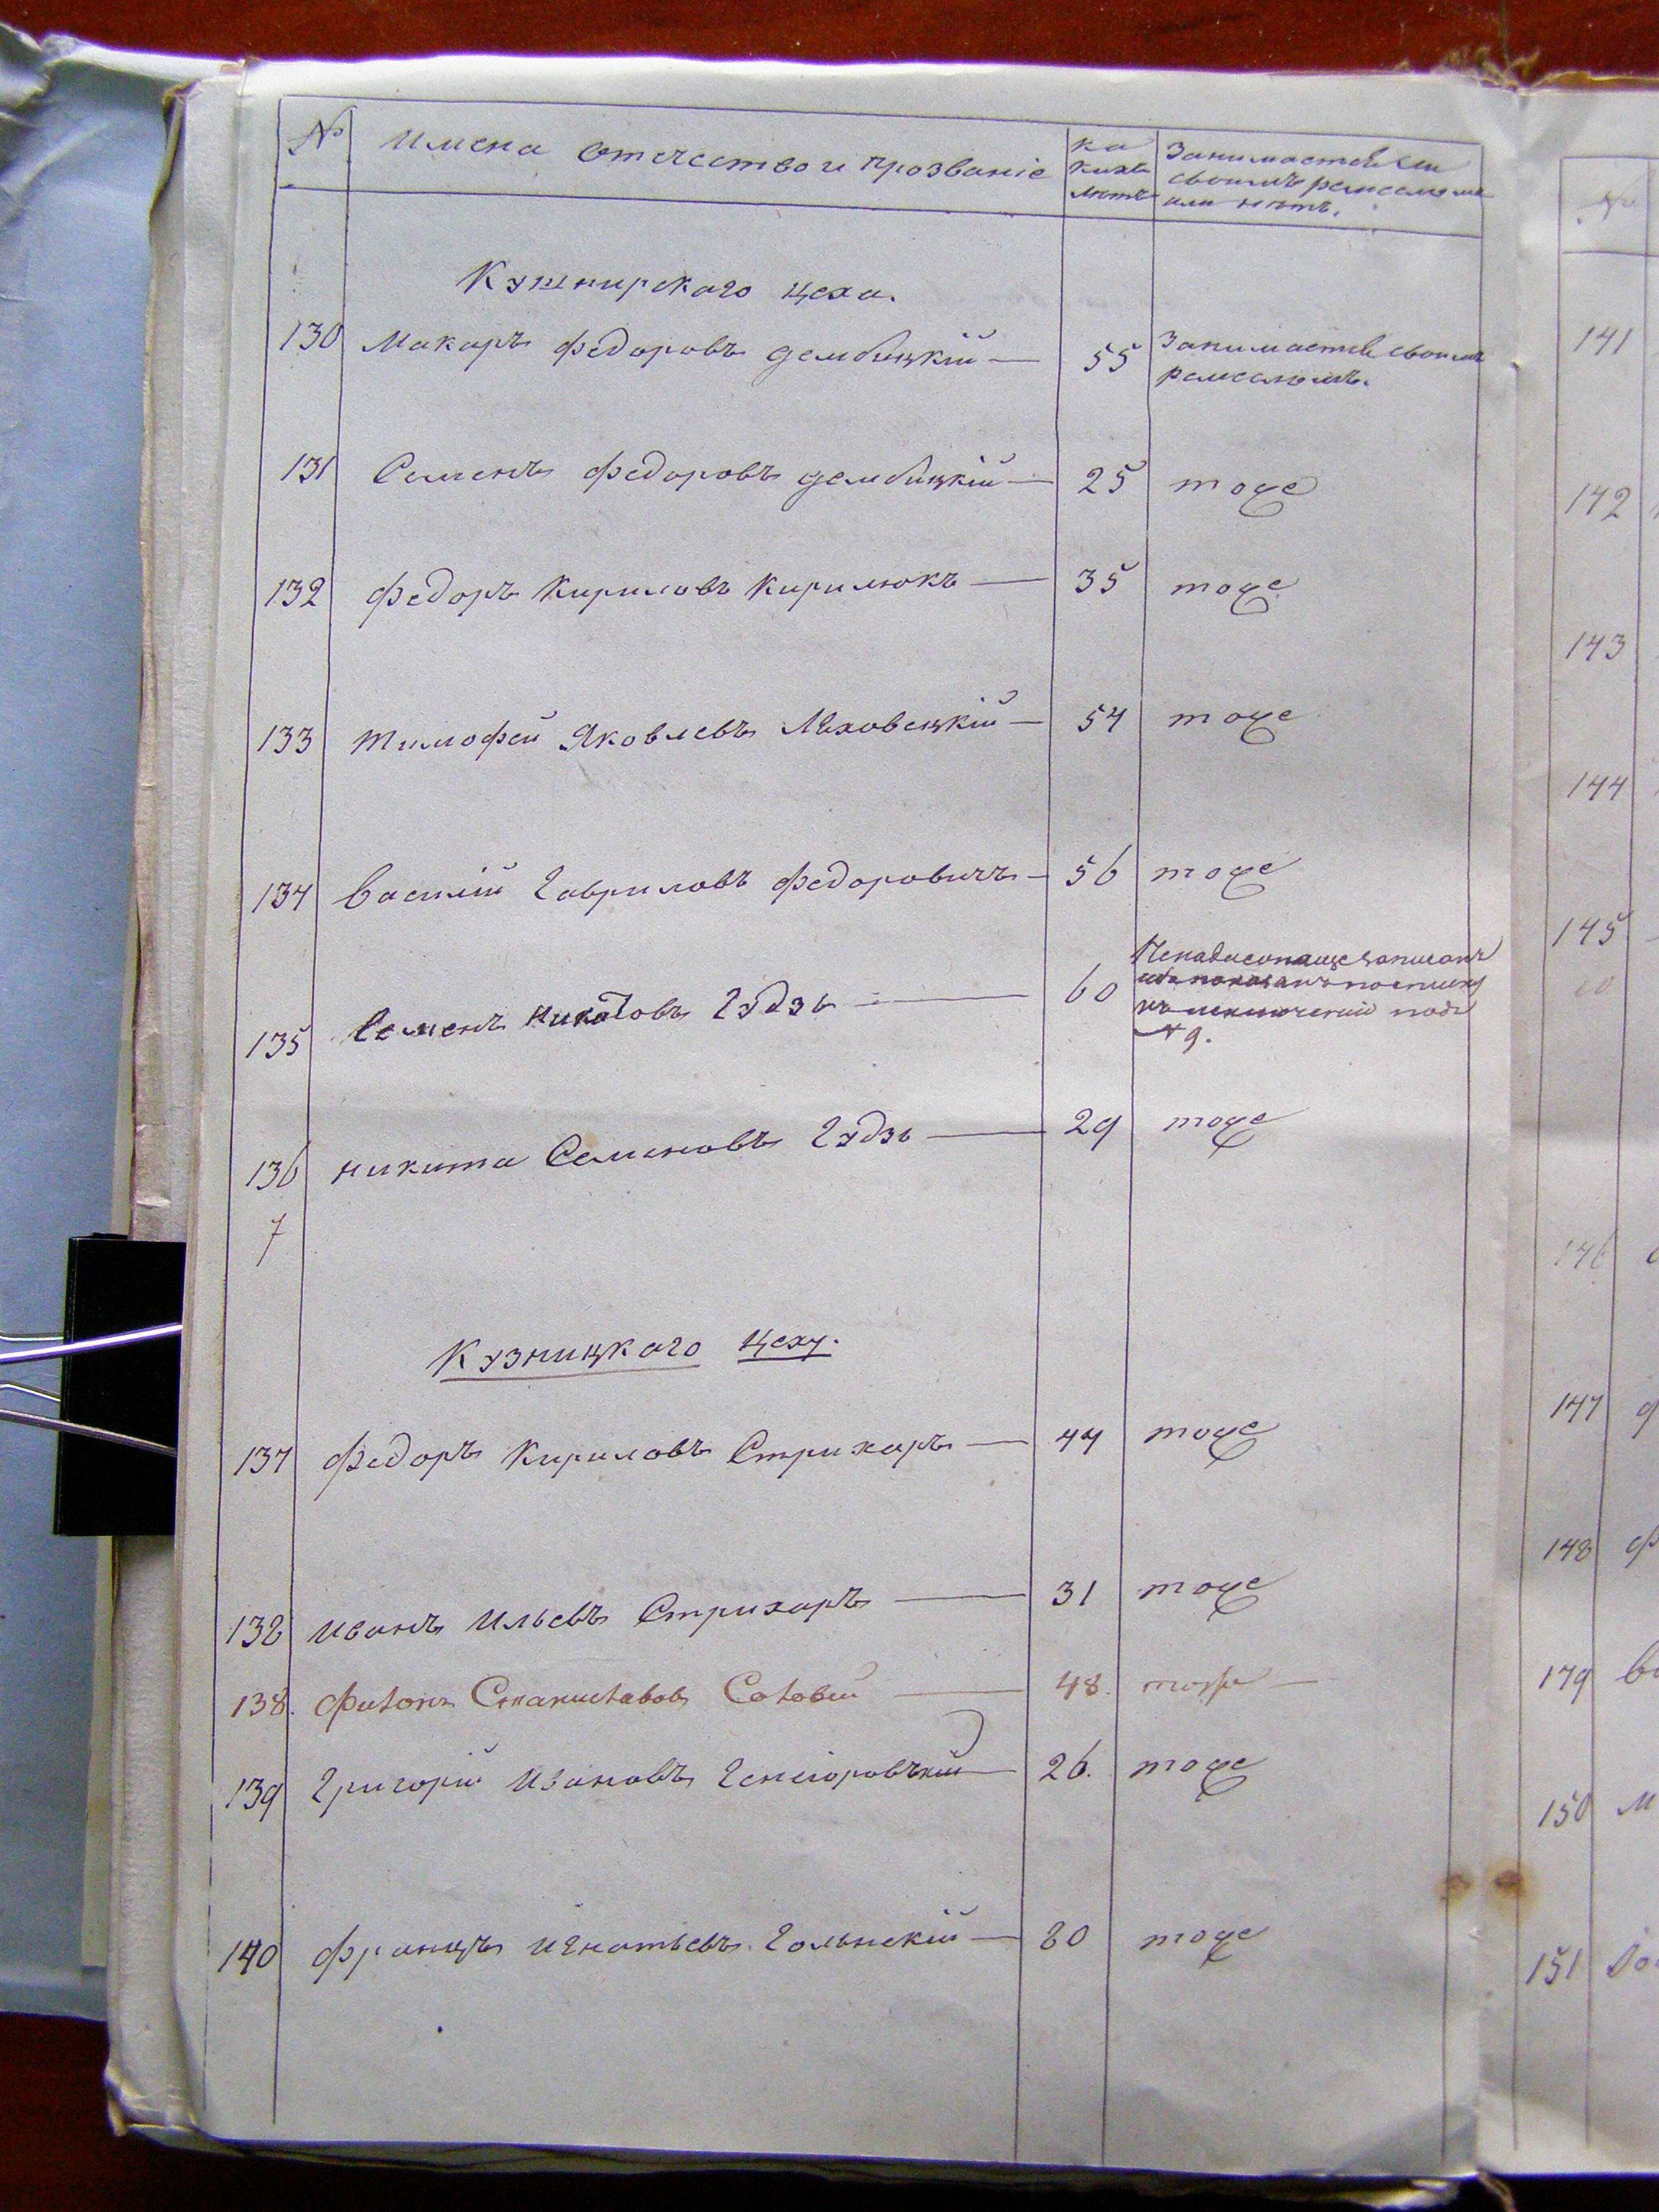 № Имена Отечество и Прозваніе Ка Занимается ли
кихъ своимъ ремесломъ
лѣтъ или нѣтъ.
Кушнирскаго цеха.
130 Макаръ Федоровъ Дембицкій — 55 Занимается своимъ
ремесломъ.
131 Семенъ Федоровъ Дембицкій — 25 тоже
132 Федоръ Кириловъ Кирилюкъ — 35 тоже
133 Тимофей Яковлевъ Ляховецкій — 54 тоже
134 Василій Гавриловъ Федоровичъ — 56 тоже
135 Семенъ Гудзь — 60
подъ
№ 9.
136 Никита Семеновъ Гудзь — 29 тоже
7
Кузницкаго Цеху.
137 Федоръ Кириловъ Стрихаръ — 44 тоже
138 Иванъ Ильевъ Стрихаръ — 31 тоже
138. Станиславовъ — 48. тоже —
139 Григорій Ивановъ — 26. тоже
140 Францъ Игнатьевъ Гольнскій — 80 тоже
141
142
143
144
145
146
147
148
149
150
151